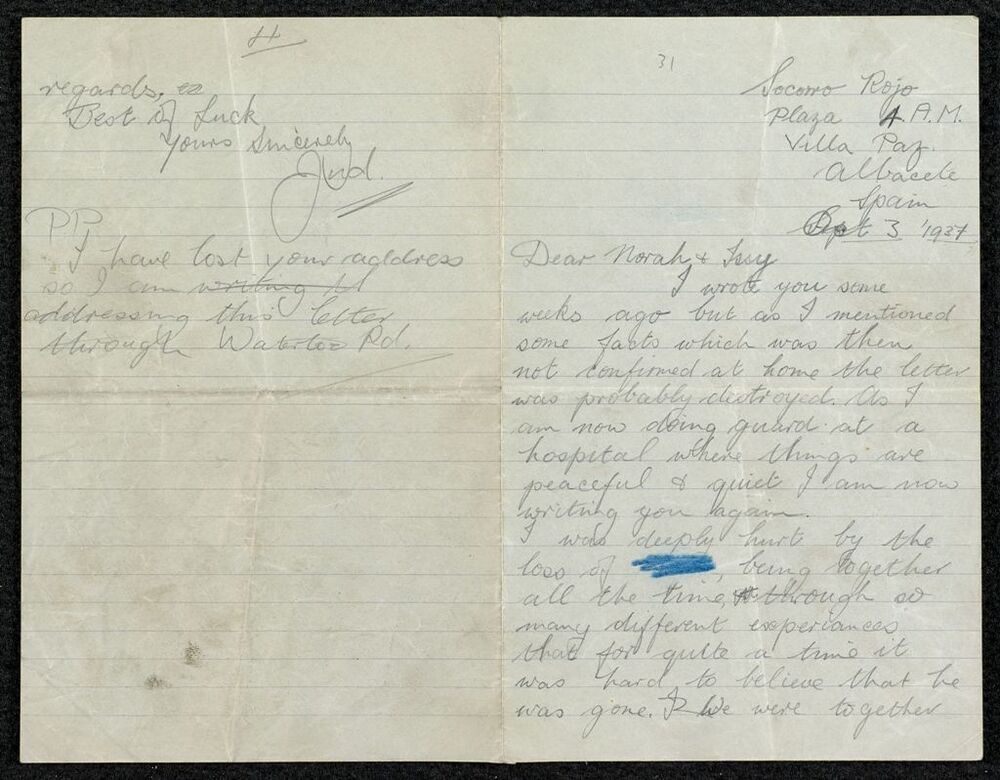 4
regards, en
Best of Luck
Yours Sincerely
Jud.
PP
I have lost your address
so I am writing it
addressing this letter
through Waterloo Rd.
31
Socorro Rojo
Plaza A.A.M.
Villa Paz.
Albacete
Spain
Sept 3 '1937
Dear Norah & Issy
I wrote you some
weeks ago but as I mentioned
some facts which was then
not confirmed at home the letter
was probably destroyed. As I
am now doing guard at a
hospital where things are
peaceful & quiet I am now
writing you again.
I was deeply hurt by the
loss of , being together
all the time, through so
many different experiances
that for quite a time it
was hard to believe that he
was gone. I We were together